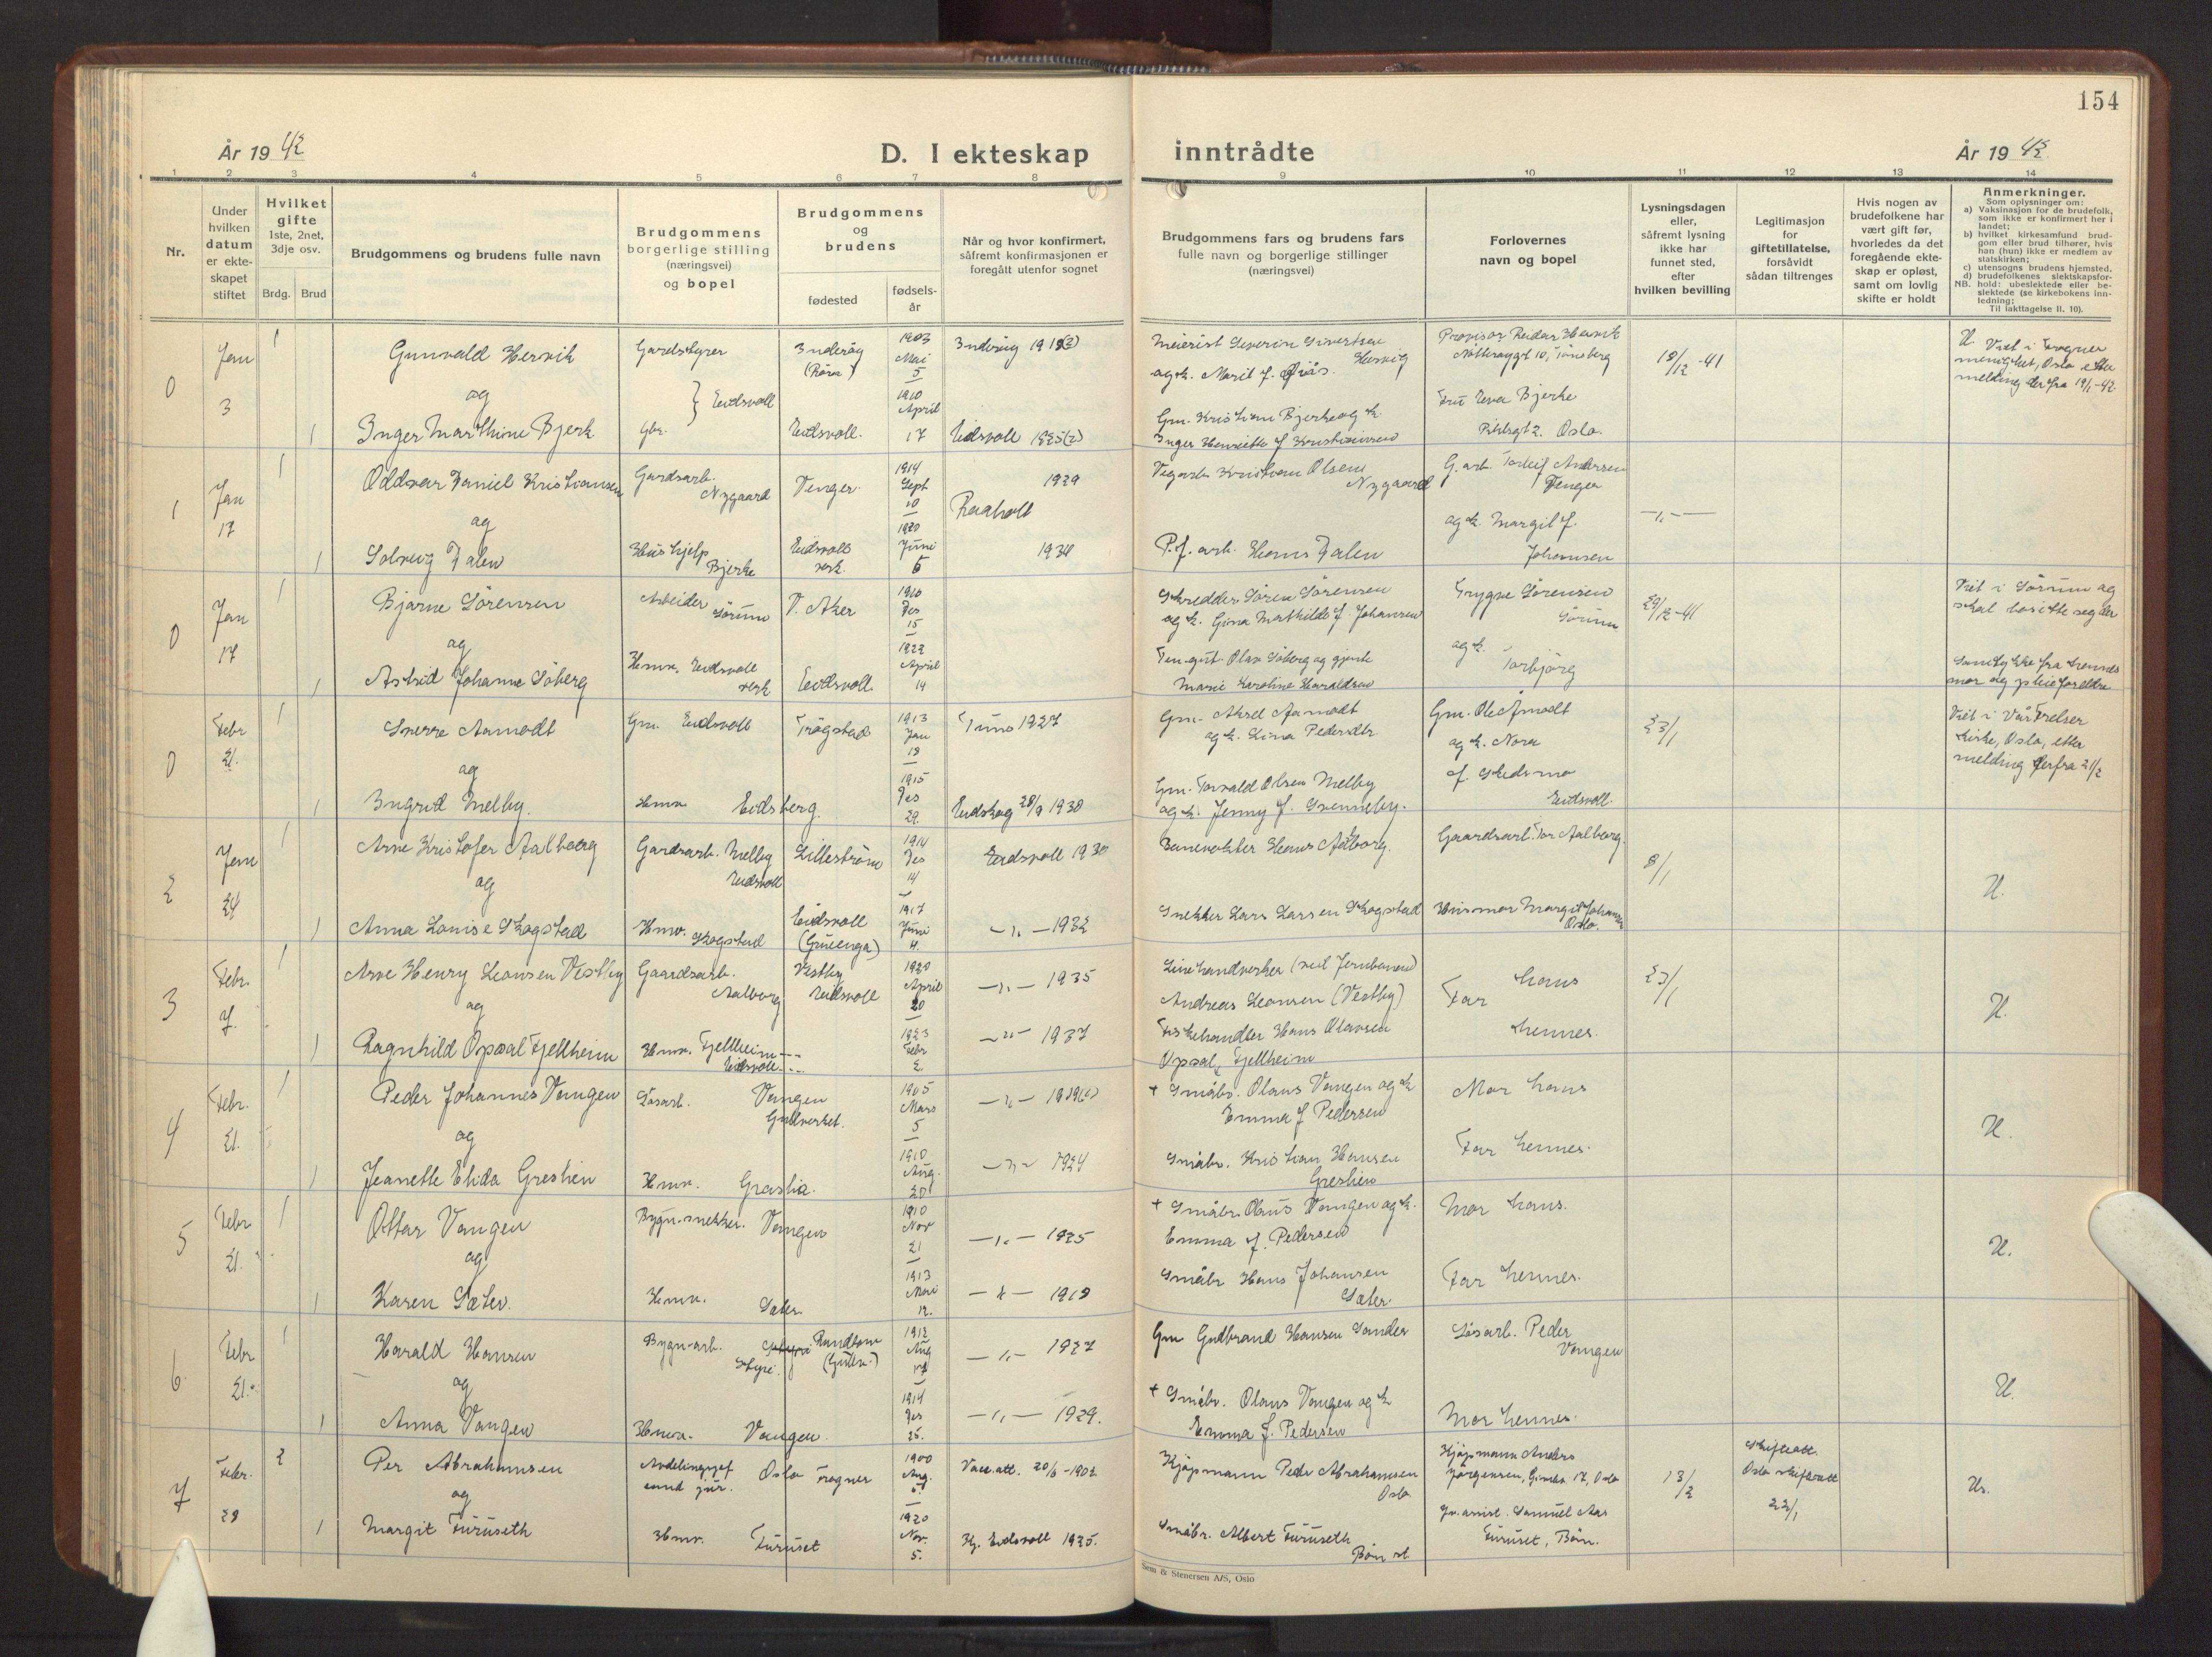 154
År 19 42
D. I ekteskap
inntrådte
År 19 42.
1
2
3
4
5
6
7
8
9
10
11
12
13
14
Nr.
Under
hvilken
datum
er ekte-
skapet
stiftet
Hvilket
gifte
1ste, 2net,
3dje osv.
Brdg.
Brud
Brudgommens og brudens fulle navn
Brudgommens
borgerlige stilling
(næringsvei)
og bopel
Brudgommens
og
brudens
fødested
fødsels-
år
Når og hvor konfirmert,
såfremt konfirmasjonen er
foregått utenfor sognet
Brudgommens fars og brudens fars
fulle navn og borgerlige stillinger
(næringsvei)
Forlovernes
navn og bopel
Lysningsdagen
eller,
såfremt lysning
ikke har
funnet sted,
efter
hvilken bevilling
Legitimasjon
for
giftetillatelse,
forsåvidt
sådan tiltrenges
Hvis nogen av
brudefolkene har
vært gift før,
hvorledes da det
foregående ekte-
skap er opløst,
samt om lovlig
skifte er holdt
Anmerkninger.
Som oplysninger om:
a) Vaksinasjon for de brudefolk,
som ikke er konfirmert her i
landet;
b) hvilket kirkesamfund brud-
gom eller brud tilhører, hvis
han (hun) ikke er medlem av
statskirken;
c) utensogns brudens hjemsted.
d) brudefolkenes slektskapsfor-
NB. hold: ubeslektede eller be-
slektede (se kirkebokens inn-
ledning;
Til iakttagelse II. 10).
0
Jan
3
1
Gunvald Hervik
og
1
Inger Marthine Bjerk
Gardstyrer
} Eidsvoll
Gbr.
Inderøy
(Røra)
Eidsvoll.
1903
Mai
5
1910
April
17
Inderøy 1918(2)
Eidsvoll 1925(2)
Meierist Severin Sivertsen
Hervig
og k. Marit f.
Gm. Kristian Bjerke og k.
Inger Henriette f Kristiansen
Provisor Reidar Hervik
10, Tønsberg
Fru Eva Bjerke
Oslo.
18/12-41
U. Viet i Frogner
menighet, Oslo etter
melding derfra 19/1-42
1
Jan
17
1
Oddvar Daniel Kristiansen
og
1
Solveig Dalen
Gardsarb.
Nygaard
Hushjelp
Bjerke
Venger
Eidsvoll
verk.
1914
Sept
10
1920
Juni
6
1929
Raaholt
1934
Vegarb. Kristian Olsen
Nygaard
P.f. arb. Hans Dalen
G. arb. Torleif Andersen
Venger
og k. Margit f.
Johansen
—„—
0
Jan
17
1
Bjarne Sörensen
og
1
Astrid Johanne Söberg
Arbeider
Sörum
Hmv. Eidsvoll
verk
V. Aker
Eidsvoll
1916
Des
15
1922
April
14
Skredder Sören Sörensen
og k. Gina Mathilde f. Johansen
Ten.gut Olav Söberg og pjente
Marie Karoline Haraldsen
Trygve Sörensen
Sörum
og k.
Torbjörg
29/12-41
Viet i Sörum og
skal bosette seg der
Samtykke fra hennes
mor og pleieforeldre
0
Febr
21.
1
Sverre Aamodt
og
1
Ingrid Melby.
Gm. Eidsvoll
Hmv.
Trögstad
Eidsberg.
1913
Jan
18
1915
Des
29.
1927
Eidskog 28/9 1930
Gm. Aksel Aamodt
og k. Lina Pedersdtr
Gm. Torvald Olsen Melby
og k. Jenny f. Svenneby.
Gm. Ole Åmodt
og k. Nora
f. Skedsmo
Eidsvoll.
23/1
Viet i Vår Frelser
kirke, Oslo, etter
melding derfra 21/2
2
Jan
24
1
Arne Kristofer Aalborg
og
1
Anna Louise Skogstad
Gardsarb. Melby
Eidsvoll
Hmv. Skogstad
Lilleström
Eidsvoll
(Gulenga)
1914
Des
14
1917
Juni
4.
Eidsvoll 1930
—„—1932
Banevokter Hans Aalborg.
Snekker Lars Larsen Skogstad
Gaardsarb. Tor Aalborg.
Husmor Margit Johansen
Oslo.
8/1
U.
3
Febr.
7.
1
Arve Henry Leonsen Vestby
og
1
Ragnhild Opsal Fjellheim
Gaardsarb.
Aalborg
Hmv. Fjellheim
Eidsvoll
Vestby
Eidsvoll
1920
April
20
1923
Febr
2.
—„—1935
—„—1937
Linehandverker (ved Jernbanen)
Andreas Leonsen (Vestby)
Fiskehandler Hans Olavsen
Opsal, Fjellheim
Far hans
hennes.
23/1
U.
4
Febr.
21.
1
Peder Johannes Vangen
og
1
Jeanette Elida Greslien
Løsarb.
Hmv.
Vangen
Gullverket.
Graslia.
1905
Mars
5
1910
Aug.
20
—„—1919(2)
—„—1924
+ Småbr. Olaus Vangen og k
Emma f Pedersen
Småbr. Kristian Hansen
Greslien
Mor hans
Far hennes.
U.
5
Febr
21.
1
Ottar Vangen
og
1
Karen Sæter.
Bygn-snekker.
Hmv.
Vangen
Sæter.
1910
Nov
21
1913
Mai
12.
—„—1925
—„—1919
+ Småbr. Olaus Vangen og k.
Emma f. Pedersen
Småbr Hans Johansen
Sæter.
Mor hans.
Far hennes.
U.
6
Febr
21.
1
Harald Hansen
og
1
Anna Vangen
Bygn-arb.
Styri.
Hmv.
(Gullv.)
Vangen.
1912
Aug
17
1914
Des
25.
—„—1927
—„—1929.
Gm Gudbrand Hansen Sander
+ Småbr. Olaus Vangen og k
Emma f. Pedersen
Løsarb. Peder
Vangen
Mor hennes.
U.
7
Febr.
28
2
Per Abrahamsen
og
1
Margit Furuseth
Avdelingssjef
cand jur.
Hmv.
Oslo Frogner
Furuset
1900
Aug.
5.
1920
Nov.
5.
Vacc. att. 20/6-1902
Kj. Eidsvoll 1935.
Kjøpmann Peder Abrahamsen
Oslo
Småbr. Albert Furuseth
Bøn st.
Kjøpmann Anders
Jørgensen, Gimle 17, Oslo
Jv. assist. Samuel Aas
Furuset, Bøn.
13/2
Skifteatt.
Oslo skifterett
22/1
Us.
Sem & Stenersen A/S, Oslo